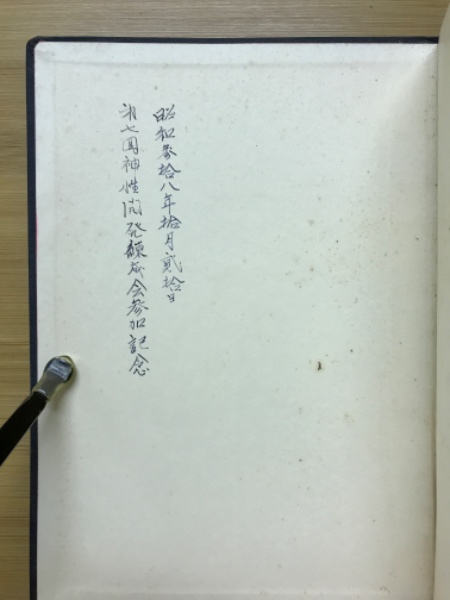 昭和参拾八年拾月貳拾日
第七回神性開発錬成会参加記念